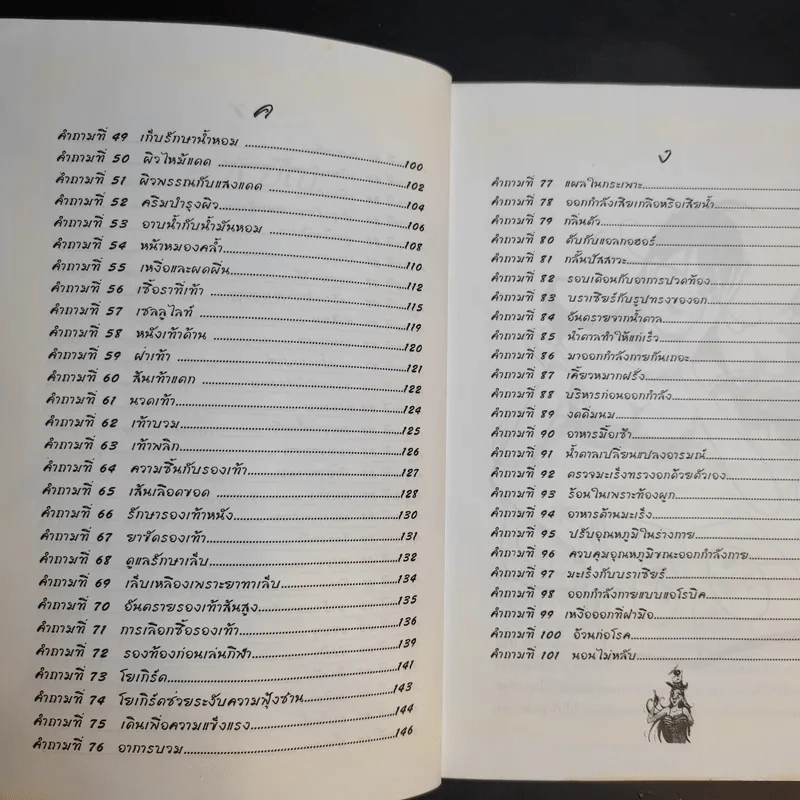 ค
คำถามที่ 49 เก็บรักษาน้ำหอม ........ 100
คำถามที่ 50 ผิวไหม้แดด ........ 102
คำถามที่ 51 ผิวพรรณกับแสงแดด ........ 104
คำถามที่ 52 ครีมบำรุงผิว ........ 106
คำถามที่ 53 อาบน้ำกับน้ำมันหอม ........ 108
คำถามที่ 54 หน้าหมองคล้ำ ........ 110
คำถามที่ 55 เหงื่อและผดผื่น ........ 112
คำถามที่ 56 เชื้อราที่เท้า ........ 115
คำถามที่ 57 เซลลูไลท์ ........ 119
คำถามที่ 58 หนังเท้าด้าน ........ 120
คำถามที่ 59 ฝ่าเท้า ........ 121
คำถามที่ 60 ส้นเท้าแตก ........ 122
คำถามที่ 61 นวดเท้า ........ 124
คำถามที่ 62 เท้าบวม ........ 125
คำถามที่ 63 เท้าพลิก ........ 126
คำถามที่ 64 ความชื้นกับรองเท้า ........ 127
คำถามที่ 65 เส้นเลือดขอด ........ 128
คำถามที่ 66 รักษารองเท้าหนัง ........ 130
คำถามที่ 67 ยาขัดรองเท้า ........ 131
คำถามที่ 68 ดูแลรักษาเล็บ ........ 132
คำถามที่ 69 เล็บเหลืองเพราะยาทาเล็บ ........ 134
คำถามที่ 70 อันตรายรองเท้าส้นสูง ........ 135
คำถามที่ 71 การเลือกซื้อรองเท้า ........ 136
คำถามที่ 72 รองท้องก่อนเล่นกีฬา ........ 139
คำถามที่ 73 โยเกิร์ต ........ 141
คำถามที่ 74 โยเกิร์ตช่วยระงับความฟุ้งซ่าน ........ 143
คำถามที่ 75 เดินเพื่อความแข็งแรง ........ 144
คำถามที่ 76 อาการบวม ........ 146
ง
คำถามที่ 77 แผลในกระเพาะ ........
คำถามที่ 78 ออกกำลังเสียเกลือหรือเสียน้ำ ........
คำถามที่ 79 กลิ่นตัว ........
คำถามที่ 80 ตับกับแอลกอฮอร์ ........
คำถามที่ 81 กลั้นปัสสาวะ ........
คำถามที่ 82 รอบเดือนกับอาการปวดท้อง ........
คำถามที่ 83 บราเซียร์กับรูปทรงของอก ........
คำถามที่ 84 อันตรายจากน้ำตาล ........
คำถามที่ 85 น้ำตาลทำให้แก่เร็ว ........
คำถามที่ 86 มาออกกำลังกายกันเถอะ ........
คำถามที่ 87 เคี้ยวหมากฝรั่ง ........
คำถามที่ 88 บริหารก่อนออกกำลัง ........
คำถามที่ 89 งดดื่มนม ........
คำถามที่ 90 อาหารมื้อเช้า ........
คำถามที่ 91 น้ำตาลเปลี่ยนแปลงอารมณ์ ........
คำถามที่ 92 ตรวจมะเร็งทรวงอกด้วยตัวเอง ........
คำถามที่ 93 ร้อนในเพราะท้องผูก ........
คำถามที่ 94 อาหารต้านมะเร็ง ........
คำถามที่ 95 ปรับอุณหภูมิในร่างกาย ........
คำถามที่ 96 ควบคุมอุณหภูมิขณะออกกำลังกาย ........
คำถามที่ 97 มะเร็งกับบราเซียร์ ........
คำถามที่ 98 ออกกำลังกายแบบแอโรบิค ........
คำถามที่ 99 เหงื่อออกที่ฝ่ามือ ........
คำถามที่ 100 อ้วนก่อโรค ........
คำถามที่ 101 นอนไม่หลับ ........